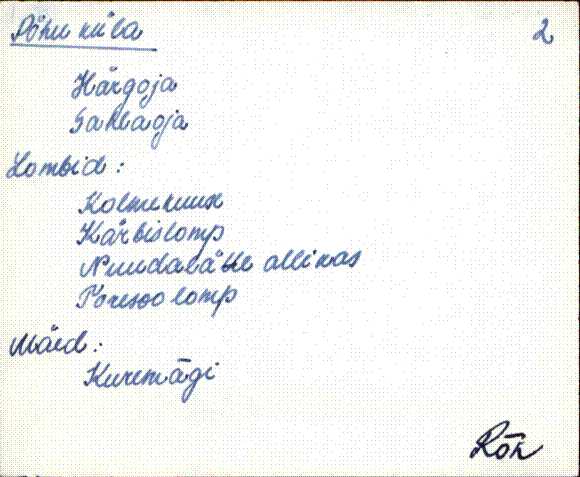 Põhu küla 2
Härgoja
Sahlaoja
Lombid:
Kolmekuusk
Kärbislomp
Nuudalätte allikas
Põresoo lomp
Mäed:
Kuremägi
Rõk